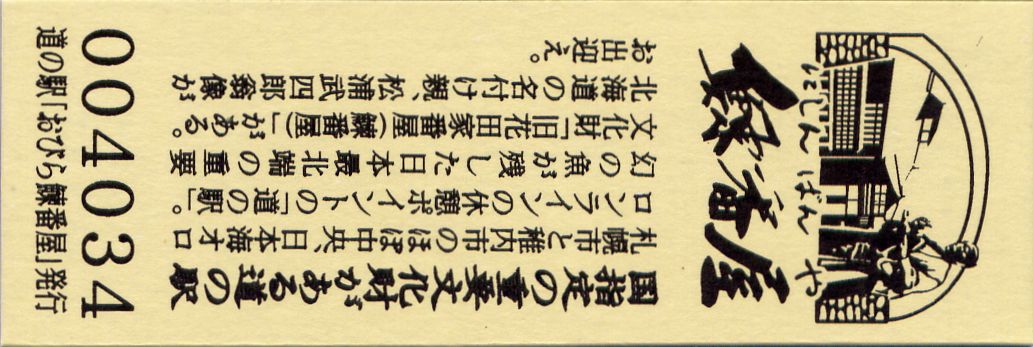 にしんばんや
鰊番屋
国指定の重要文化財がある道の駅
札幌市と稚内市のほぼ中央、日本海オロ
ロンラインの休憩ポイントの「道の駅」。
幻の魚が残した日本最北端の重要
文化財「旧花田家番屋(鰊番屋)」がある。
北海道の名付け親、松浦武四郎翁像が
お出迎え。
004034
道の駅「おびら鰊番屋」発行